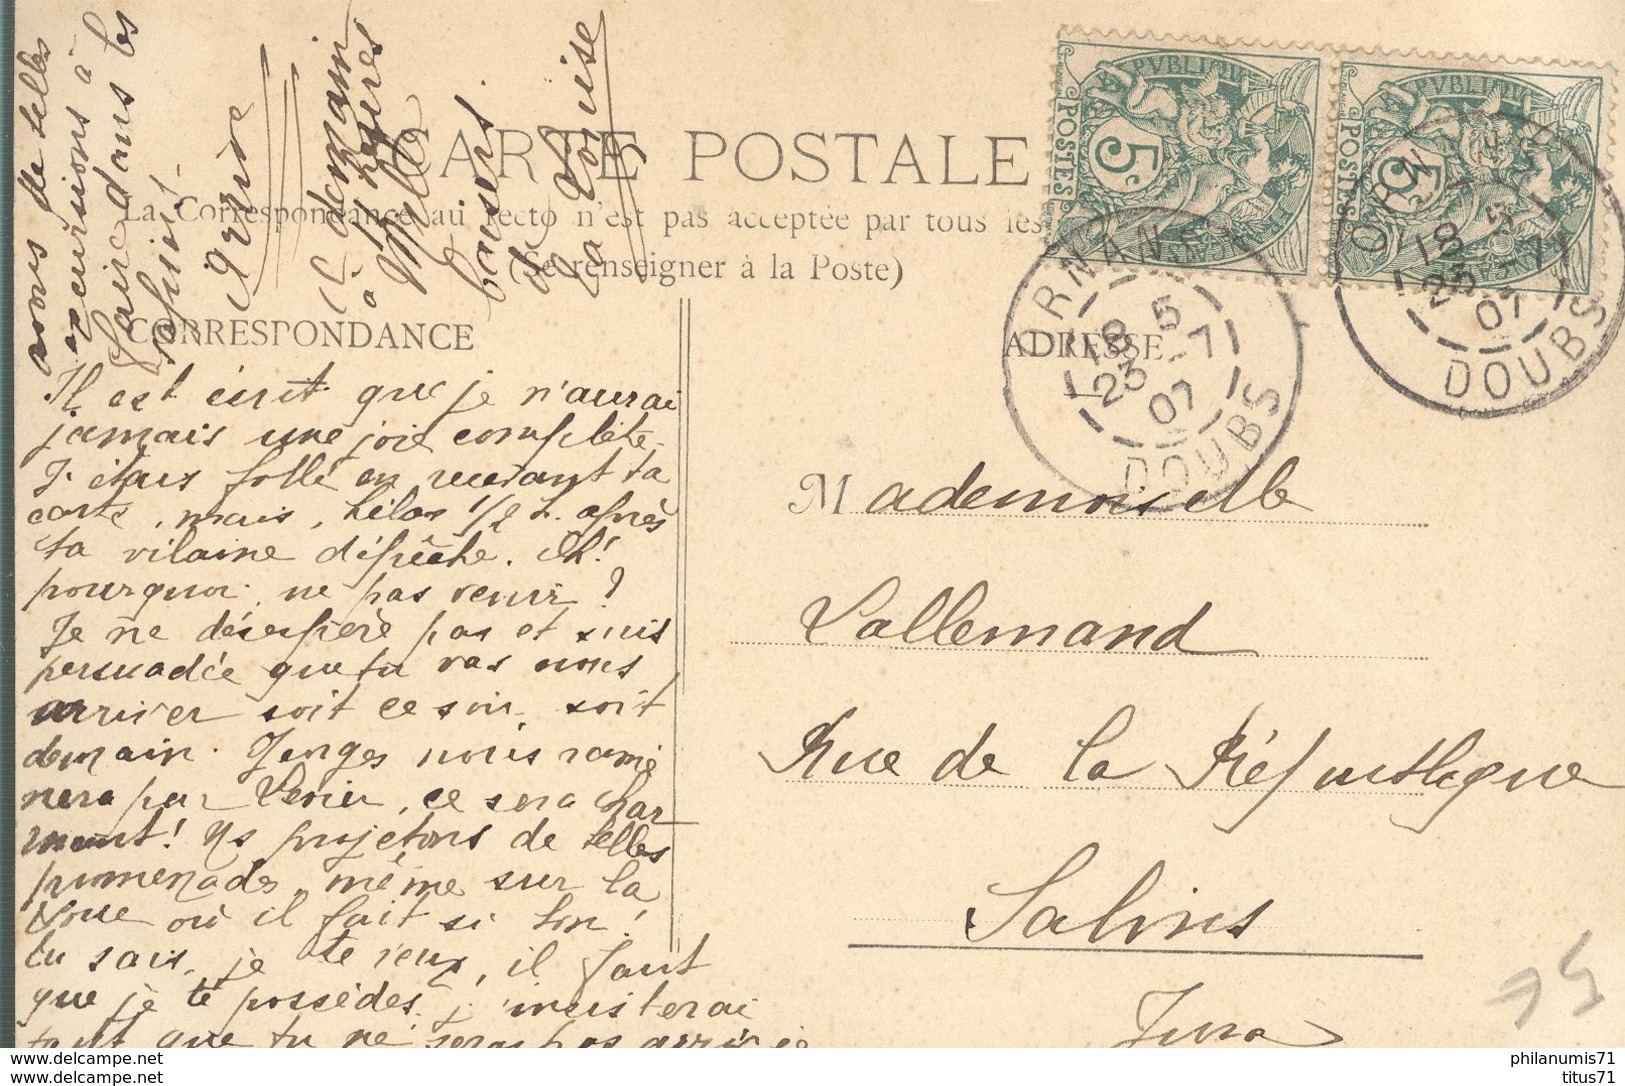 CARTE POSTALE
La Correspondance au recto n'est pas acceptée par tous les
(Se renseigner à la Poste)
CORRESPONDANCE
ADRESSE
RÉPUBLIQUE
POSTES
5c
RÉPUBLIQUE
POSTES
5c
ORNANS
18 5
23 - 7
07
DOUBS
ORNANS
18 5
23 - 7
07
DOUBS
Il est écrit que je n'aurai
jamais une joie complète.
J'étais folle en recevant ta
carte, mais, hélas 1/2 h. après
ta vilaine dépêche. Ah!
pourquoi ne pas venir?
Je ne désespère pas et suis
persuadée que tu vas nous
arriver soit ce soir, soit
demain. nous ramè
nera par, ce sera char
mant! Ns projetons de telles
promenades, même sur la
Loue où il fait si bon!
tu sais, je te veux, il faut
que je te possède, j'insisterai
tant que tu ne seras pas arrivée
nous de telles
excursions à
faire dans les
à demain
11 heures
Mille
baisers
de
ta Louise
Mademoiselle
Lallemand
Rue de la République
Salins
Jura
75
www.delcampe.net
philanumis71
www.delcampe.net
titus71